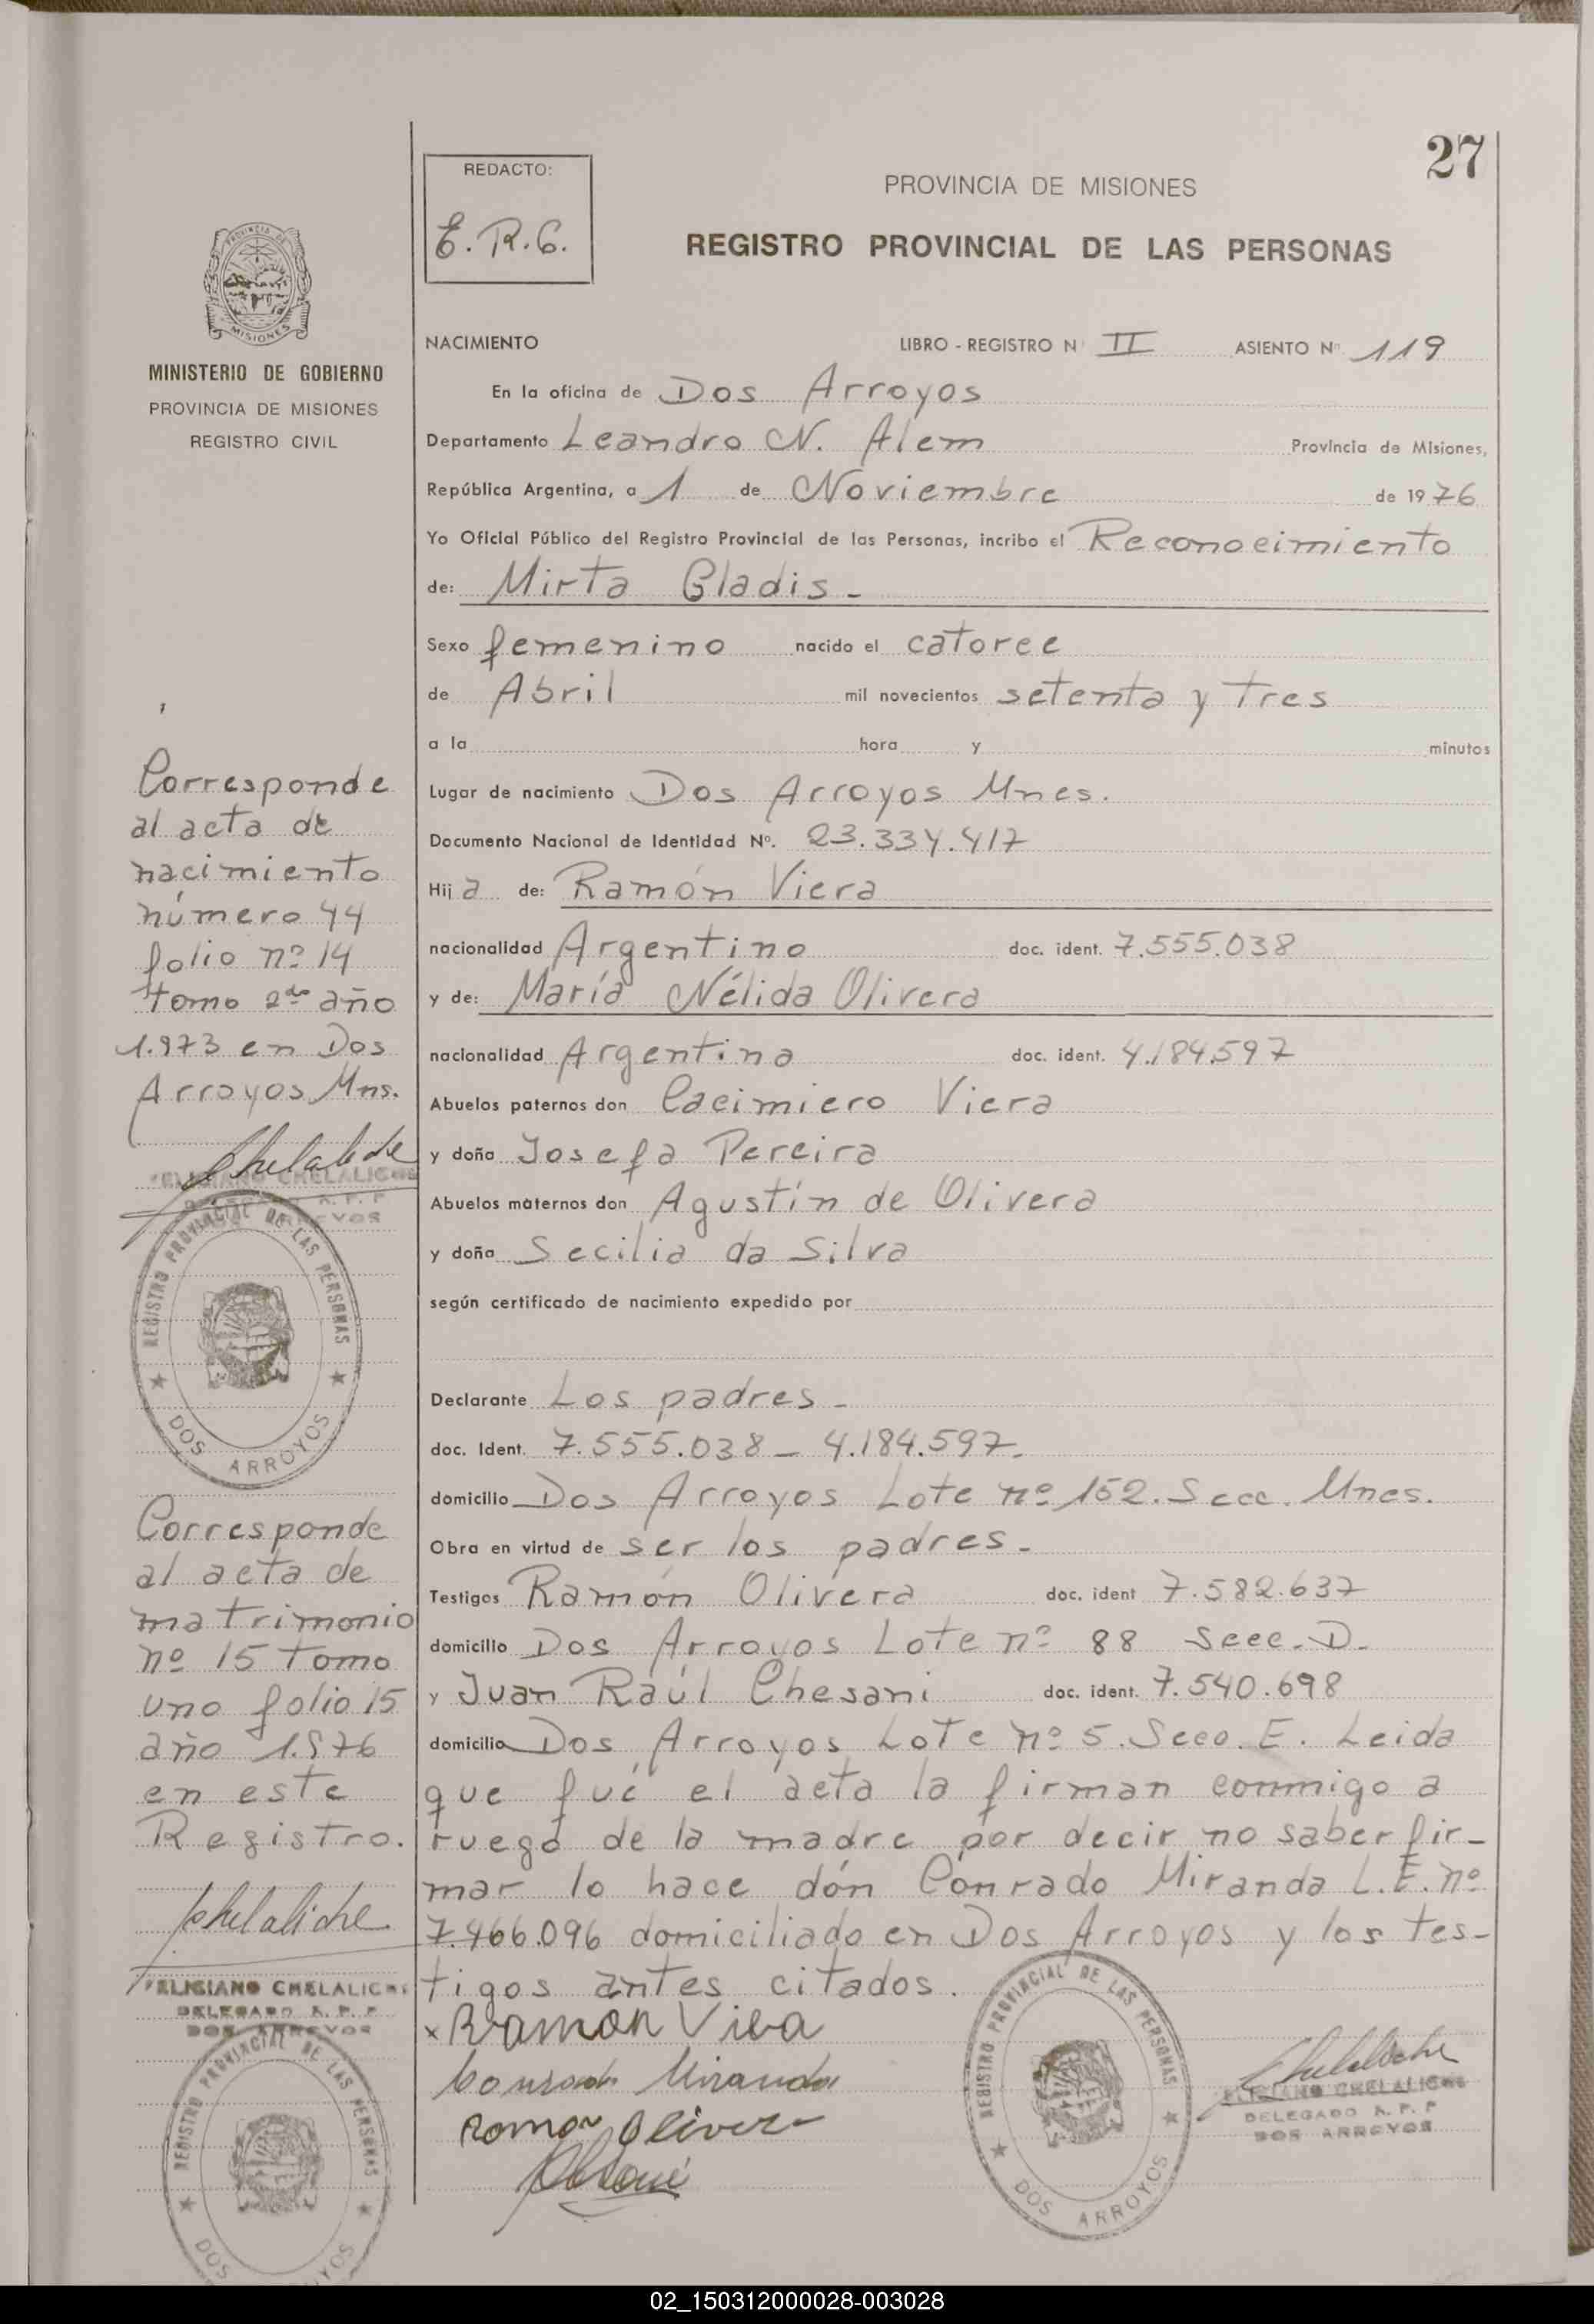 27
REDACTO:
E. R. G.
PROVINCIA DE MISIONES
REGISTRO PROVINCIAL DE LAS PERSONAS
PROVINCIA DE
MISIONES
MINISTERIO DE GOBIERNO
PROVINCIA DE MISIONES
REGISTRO CIVIL
NACIMIENTO LIBRO - REGISTRO N° II ASIENTO N° 119
En la oficina de Dos Arroyos
Departamento Leandro N. Alem Provincia de Misiones,
República Argentina, a 1 de Noviembre de 1976
Yo Oficial Público del Registro Provincial de las Personas, incribo el Reconocimiento
de: Mirta Gladis -
Sexo femenino nacido el catorce
de Abril mil novecientos setenta y tres
a la hora y minutos
Lugar de nacimiento Dos Arroyos Mnes.
Documento Nacional de Identidad N°. 23.334.417
Hij a de: Ramón Viera
nacionalidad Argentino doc. ident. 7.555.038
y de: María Nélida Olivera
nacionalidad Argentina doc. ident. 4.184.597
Abuelos paternos don Cacimiero Viera
y doña Josefa Pereira
Abuelos maternos don Agustín de Olivera
y doña Secilia da Silva
según certificado de nacimiento expedido por
Declarante Los padres -
doc. Ident. 7.555.038 - 4.184.597.
domicilio Dos Arroyos Lote nº 152. Secc. Mnes.
Obra en virtud de ser los padres -
Testigos Ramón Olivera doc. ident 7.582.637
domicilio Dos Arroyos Lote nº 88 Secc. D.
y Juan Raúl Chesani doc. ident. 7.540.698
domicilio Dos Arroyos Lote nº 5. Secc. E. Leida
que fué el acta la firman conmigo a
ruego de la madre por decir no saber fir-
mar lo hace dón Conrado Miranda L.E. nº
7.466.096 domiciliado en Dos Arroyos y los tes-
tigos antes citados.
x Ramon Viea
Conrado Miranda
Ramon Olivera
Chelaliche
FELICIANO CHELALICHE
DELEGADO R. P. P
DOS ARROYOS
REGISTRO PROVINCIAL DE LAS PERSONAS
DOS ARROYOS
Corresponde
al acta de
nacimiento
número 44
folio nº 14
tomo 2do año
1.973 en Dos
Arroyos Mns.
Chelaliche
FELICIANO CHELALICHE
DELEGADO R. P. P
DOS ARROYOS
REGISTRO PROVINCIAL DE LAS PERSONAS
DOS ARROYOS
Corresponde
al acta de
matrimonio
nº 15 tomo
uno folio 15
año 1.976
en este
Registro.
Chelaliche
FELICIANO CHELALICHE
DELEGADO R. P. P
DOS ARROYOS
REGISTRO PROVINCIAL DE LAS PERSONAS
DOS ARROYOS
02_150312000028-003028